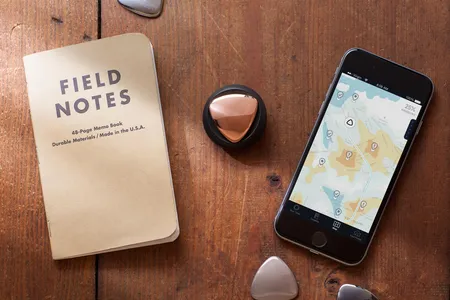 FIELD
NOTES
48-Page Memo Book
Durable Materials / Made in the U.S.A.